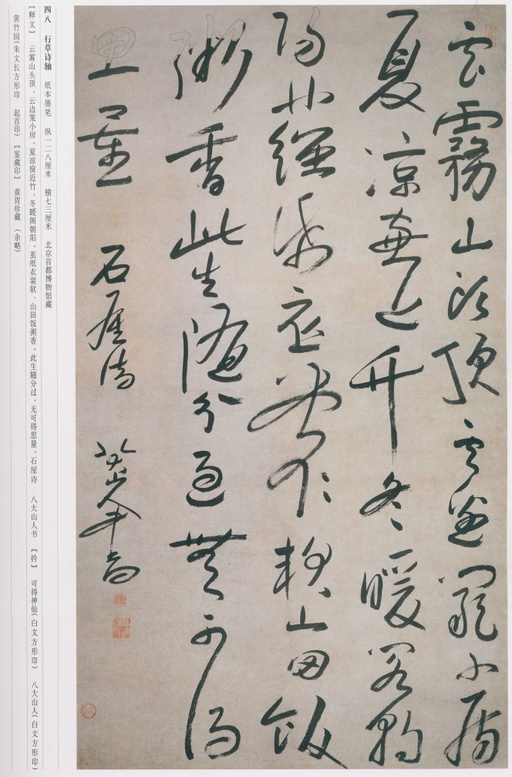 云霧山頭頂云邊籠小房
夏涼窗近竹冬暖閣朝
陽紙衣裳軟山田飯
粥香此生隨分過無可得
思量 石屋詩 八大山人書
四八 行草诗轴 纸本墨笔 纵一二八厘米 横七三厘米 北京首都博物馆藏
【释文】 云雾山头顶，云边笼小房，夏凉窗近竹，冬暖阁朝阳，纸衣裳软，山田饭粥香，此生随分过，无可得思量。石屋诗 八大山人书 【钤】 可得神仙（白文方形印） 八大山人（白文方形印）
黄竹园（朱文长方形印 起首印） 【鉴藏印】 黄胄珍藏 （余略）